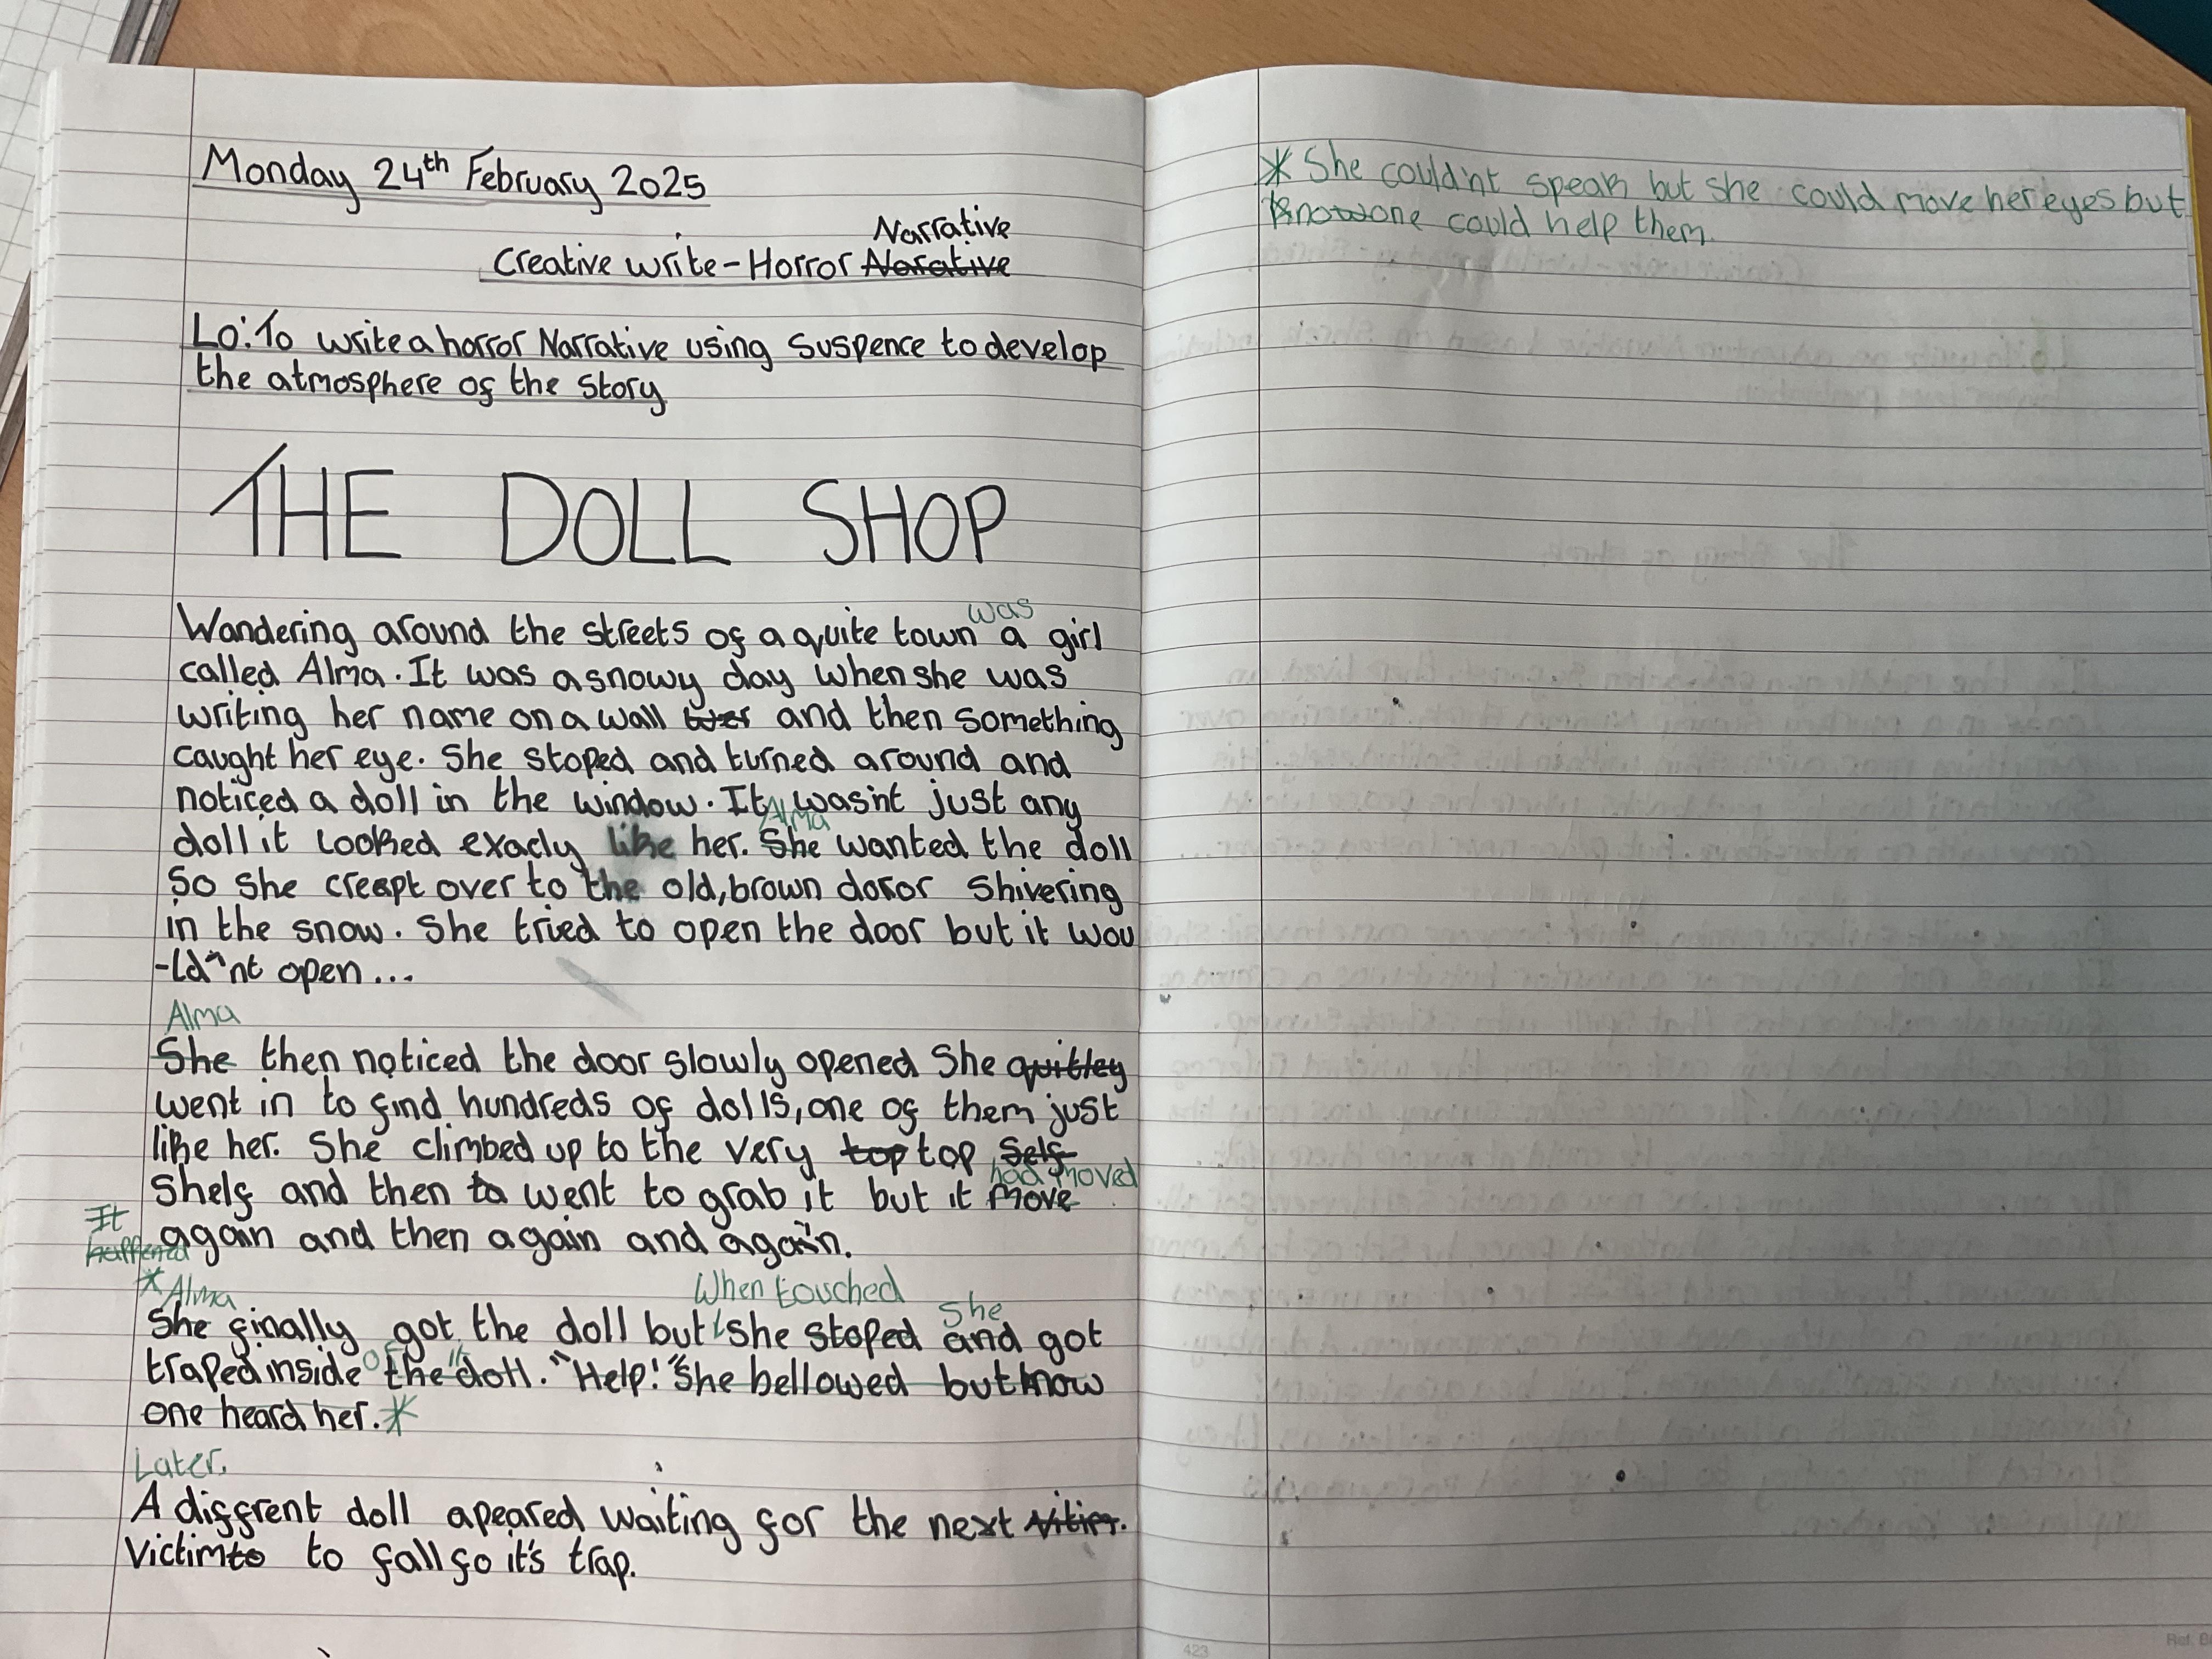 Monday 24th February 2025
Narrative
Creative write - Horror Narative
Lo: To write a horror Narrative using Suspence to develop
the atmosphere of the Story
THE DOLL SHOP
was
Wandering around the streets of a quite town a girl
called Alma. It was a snowy day when she was
writing her name on a wall and then something
caught her eye. She stoped and turned around and
noticed a doll in the window. It wasn't just any
Alma
doll it looked exacly like her. She wanted the doll
So she creapt over to the old, brown door shivering
in the snow. She tried to open the door but it wou
-ld"nt open...
Alma
She then noticed the door slowly opened She quitley
went in to find hundreds of dolls, one of them just
like her. She climbed up to the very top top self
had moved
Shelf and then to went to grab it but it move
It
happened again and then again and again.
* Alma When touched She
She finally got the doll but she stoped and got
of it
traped inside the doll. "Help!" She bellowed but know
one heard her. *
Later,
A diffrent doll apeared waiting for the next vitim.
Victim to to fall fo it's trap.
* She could'nt speak but she could move her eyes but
knowone could help them.
423